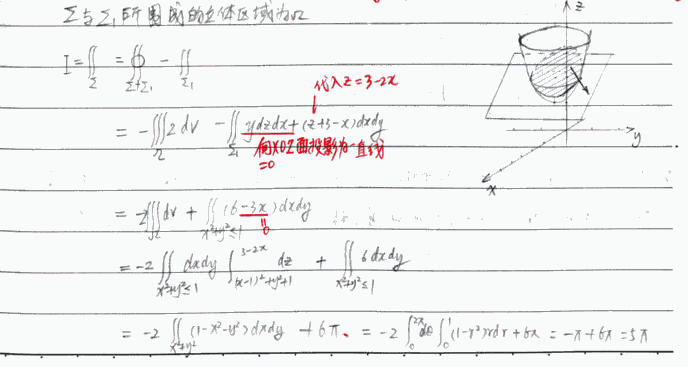 Σ与Σ₁所围成的立体区域为Ω
I = ∬_Σ = ∯_{Σ+Σ₁} - ∬_{Σ₁}
代入z=3-2x
= -∭_Ω 2 dv - ∬_{Σ₁} ydzdx + (z+3-x)dxdy
向XOZ面投影为一直线
=0
= -2∭_Ω dv + ∬_{x²+y²≤1} (6-3x)dxdy
0
= -2∬_{x²+y²≤1} dxdy ∫_{(x-1)²+y²+1}^{3-2x} dz + ∬_{x²+y²≤1} 6dxdy
= -2∬_{x²+y²} (1-x²-y²)dxdy + 6π. = -2∫_0^{2π} dθ ∫_0^1 (1-r²)rdr + 6π = -π+6π = 5π
z
y
x